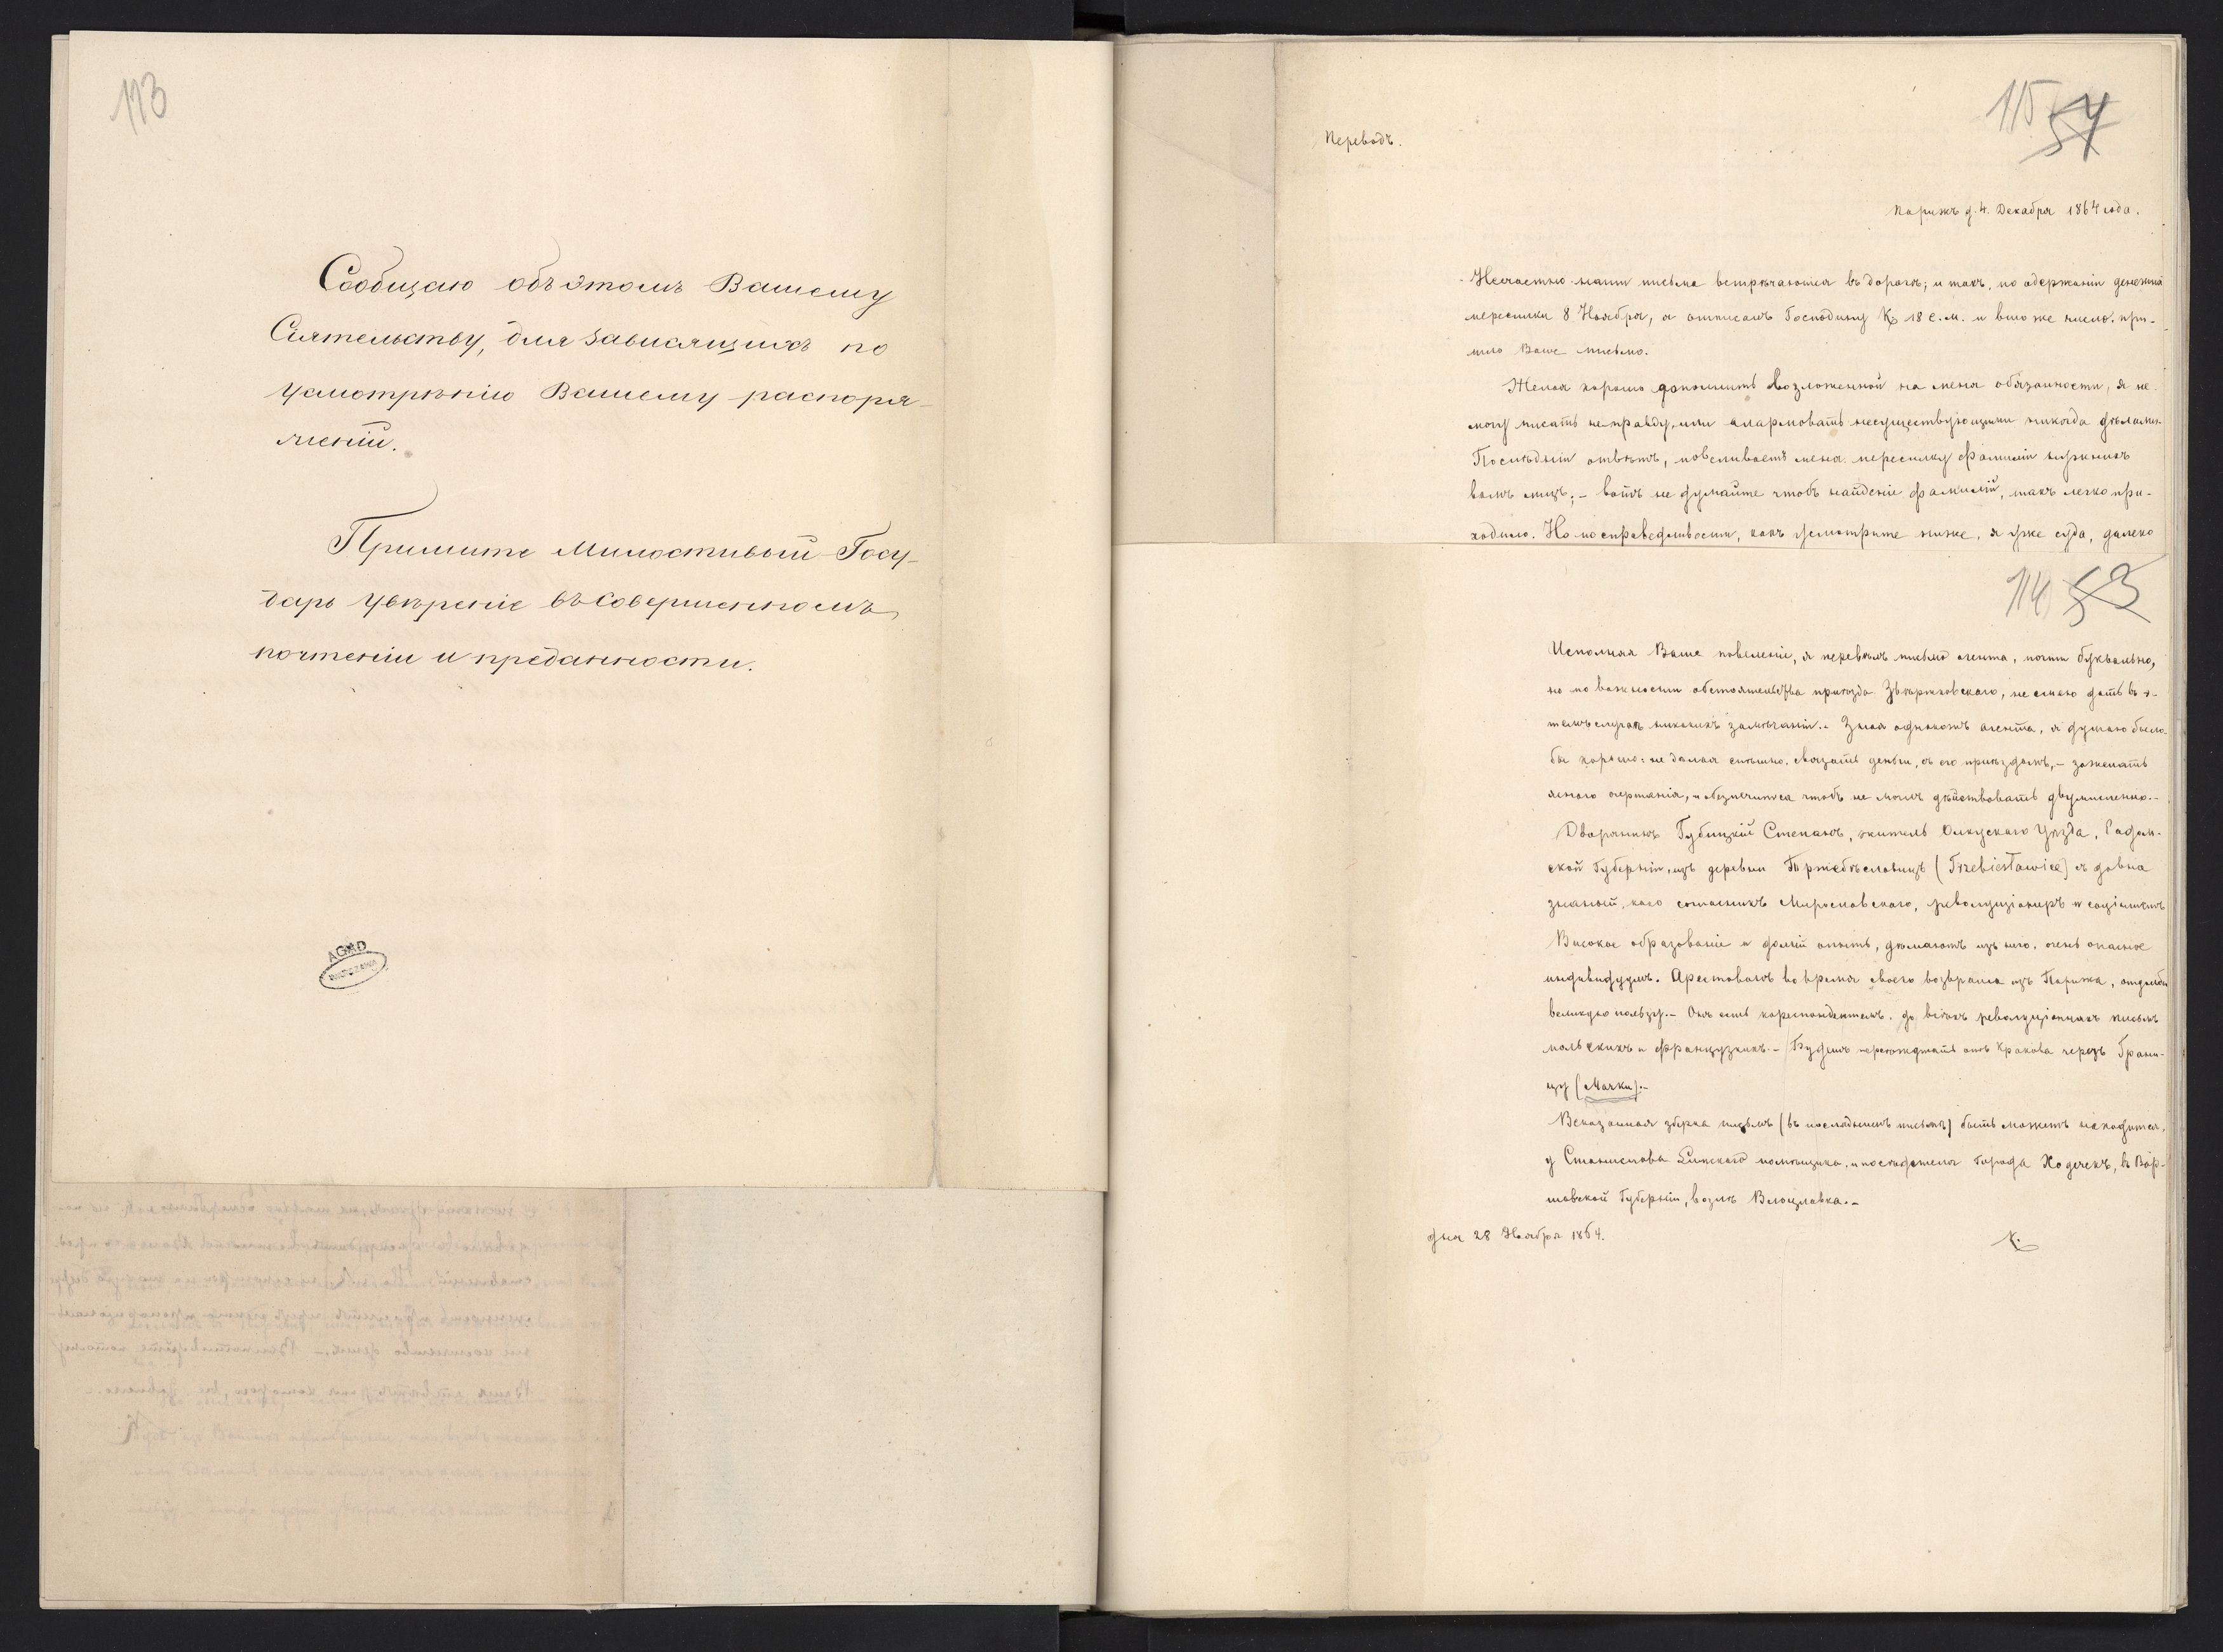 113
Сообщаю объ этомъ Вашему
Сіятельству, для зависящихъ по
усмотрѣнію Вашему распоря-
женій.
Примите Милостивый Госу-
дарь увѣреніе въ совершенномъ
почтеніи и преданности.
AGAD
WARSZAWA
115 54
Переводъ.
Парижъ д. 4. Декабря 1864 года.
Несчастно наши письма встрѣчаются въ дорогѣ; и такъ, по одержаніи денежной
пересилки 8 Ноября, я отписалъ Господину К 18 с. м. и в тоже число при-
шло Ваше письмо.
Желая хорошо дополнить возложенной на меня обязанности, я не
могу писать неправду, или алармовать несуществующими никогда дѣлами.
Послѣдній отвѣтъ, повеливаетъ меня пересилку фамиліи нужнихъ
вамъ лицъ; - не думайте чтобъ найденіе фамилій, такъ легко при-
ходило. Но по справедливости, какъ усмотрите ниже, я уже сюда, далеко
114 53
Исполняя Ваше повеленіе, я перевелъ письмо агента, почти буквально,
но по важности обстоятельства приезда Звѣржховскаго, не смею дать въ э-
темъ случаѣ никакихъ замѣчаній. - Зная однакожъ агента, я думаю было-
бы хорошо: не далая спѣшно, связать деньги, съ его приѣздомъ, - зажелать
яснаго, чтобъ не могъ дѣйствовать двумисленно. -
Дворянинъ Губицкій Степанъ, житель Олкускаго Уѣзда, Радом-
ской Губерніи, изъ деревни Тржебѣславицъ (Trzebiesławice) съ давна
знаный, како согласникъ Мирославскаго, революціонеръ и соціалистъ
Високое образованіе и долгій опытъ, дѣлаютъ изъ него, очень опасное
индивидуумъ. Арестовать во время своего возврата изъ Парижа,
великую пользу. - Онъ есть кореспондентомъ, до всѣхъ революціонныхъ писемъ
польскихъ и французкихъ. - Будетъ переѣжджать отъ Кракова черезъ Грани-
цу (Мачки). -
Всказанная зберка писемъ (въ послѣднемъ письмѣ) быть можетъ находится,
у Станислава Липскаго помѣщика, и посѣдателя города Ходечекъ, въ Вар-
шавской Губерніи, возлѣ Влоцлавка. -
дня 28 Ноября 1864.
К.